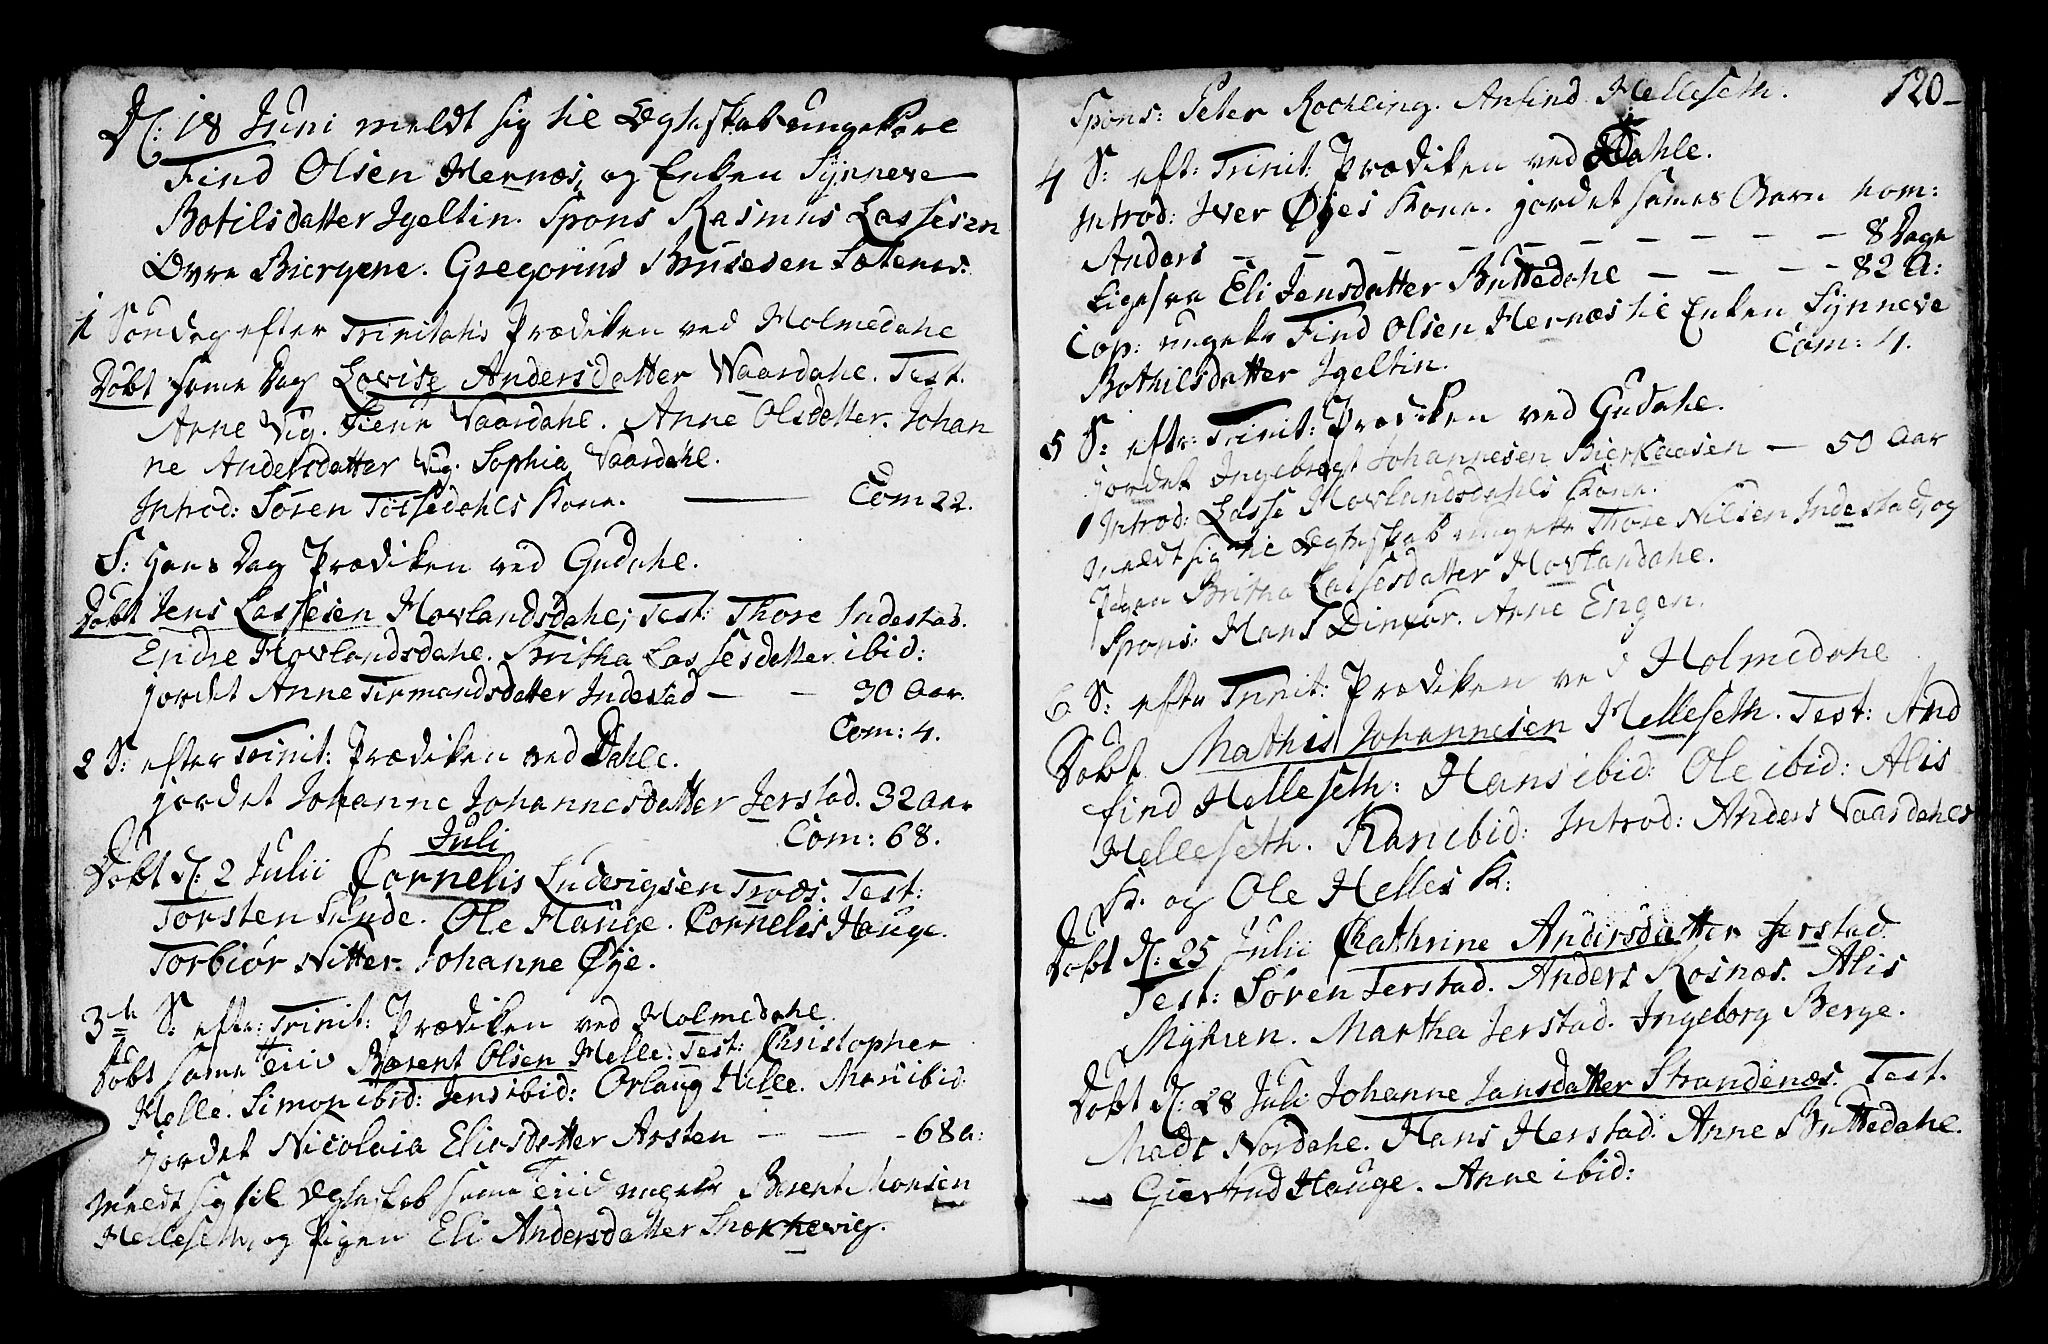 D: 18 Juni meldt sig til Egteskab ungekarl
Find Olsen Hernæs, og Enken Synneve
Botilsdatter Igeltin. Spons Rasmus Lassesen
Dyre Biergene. Gregorius Brusesen Sæteren.
1 Søndag efter Trinitatis Prædiken ved Holmedahl
Døbt same Dag Lovise Andersdatter Waardahl. Test.
Arne Vig. Siene Vaardahl. Anne Olsdatter. Johan
ne Andersdatter Vig. Sophia Vaardahl.
Introd: Søren Tossedahls Kone. Com 22.
S: Hans Dag Prædiken ved Gudahl.
Døbt Jens Lassesen Hovlandsdahl; Test: Thore Indestad.
Endre Hovlandsdahl. Britha Lassesdatter ibid:
jordet Anne Tormandsdatter Indestad — — 30 Aar.
Com: 4.
2 S: efter Trinit: Prædiken ved Dahle.
jordet Johanne Johannesdatter Jerstad. 32 Aar
Juli Com: 68.
Døbt d: 2 Julii Cornelis Ludvigsen Træs. Test:
Torsten Sunde. Ole Hauge. Cornelis Hauge.
Torbiør Nitter. Johanne Øye.
3de S: eft: Trinit: Prædiken ved Holmedahl.
Døbt same Tiid Bærent Olsen Helle. Test: Christopher
Helle. Simon ibid: Jens ibid: Orlaug Helle. Mari ibid:
jordet Nicolaia Eliasdatter Arsten — — - 68 a:
meldt sig til Egteskab same Tiid ungekarl Berent Monsen
Helleseth, og Pigen Eli Andersdatter Snækkevig.
120
Spons: Peter Rochling. Anfind Helleseth.
4 S: eft: Trinit: Prædiken ved Dahle.
Introd: Iver Øyes Kone. jordet sames Barn nom:
Anders — — — — — — — 8 Dage
Ligesaa Eli Jensdatter Buttedahl — — — 82 A:
Cop: ungekarl Find Olsen Hernæs til Enken Synneve
Bothilsdatter Igeltin. Com: 4.
5 S: eft: Trinit: Prædiken ved Gudahl.
jordet Ingebrægt Johannesen Bierkaasen — 50 Aar
Introd: Lasse Hovlandsdahls Kone.
meldt sig til Egteskab ungekarl Thore Nilsen Indestad, og
Pigen Britha Lassesdatter Hovlandahl.
Spons: Hans Dinxør. Arne Engen.
6 S: efter Trinit: Prædiken ved Holmedahl
Døbt Mathis Johannesen Helleseth. Test: And
find Helleseth: Hans ibid: Ole ibid: Alis
Helleseth. Kari ibid: Introd: Anders Vaardahls
K. og Ole Helles K:
Døbt d: 25 Julii Chathrine Andersdatter Jerstad.
Test: Søren Jerstad. Anders Rosnæs. Alis
Myhren. Martha Jerstad. Ingeborg Berge.
Døbt d: 28 Juli Johanne Jansdatter Strandenæs. Test.
Mads Nordahl. Hans Herstad. Anne Buttedahl.
Giertrud Hauge. Anne ibid: